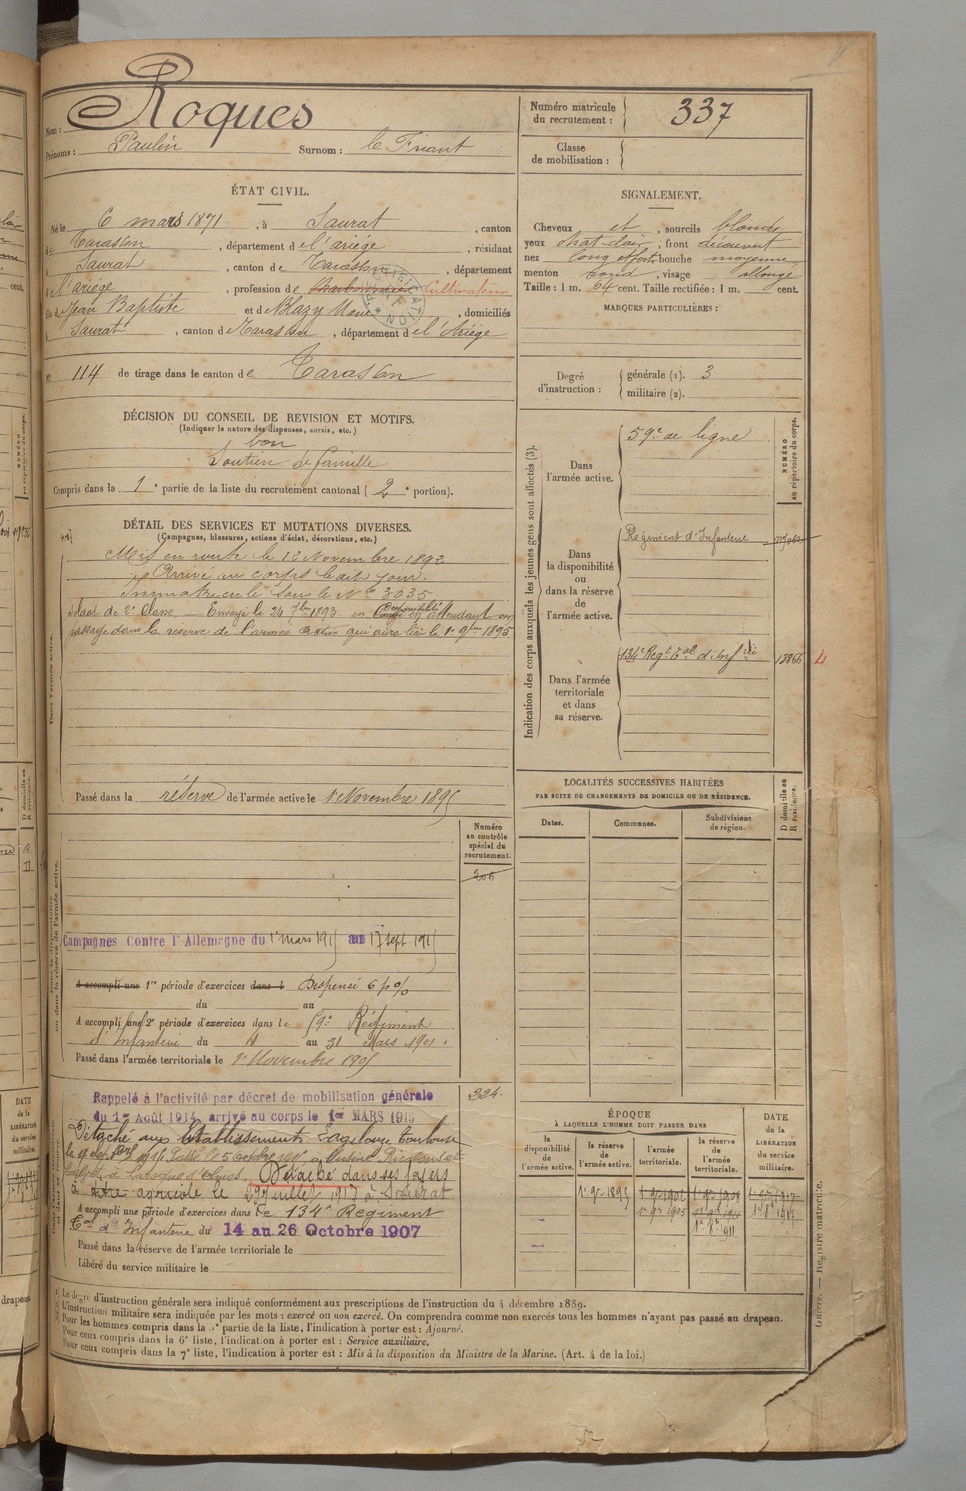 Nom : Roques
Prénoms : Paulin Surnom : le Friant
Numéro matricule du recrutement : 337
Classe de mobilisation :
ÉTAT CIVIL.
Né le 6 mars 1871, à Saurat, canton
de Tarascon, département de l'ariège, résidant
à Saurat, canton de Tarascon, département
de l'ariège, profession de Cultivateur
fils de Jean Baptiste et de Blazy Marie, domiciliés
à Saurat, canton de Tarascon, département de l'Ariège
N° 114 de tirage dans le canton de Tarascon
SIGNALEMENT.
Cheveux et, sourcils blonds
yeux chat clair, front découvert
nez long et fort bouche moyenne
menton rond, visage allongé
Taille : 1 m. 64 cent. Taille rectifiée : 1 m. cent.
MARQUES PARTICULIÈRES :
Degré d'instruction : générale (1). 3
militaire (2).
DÉCISION DU CONSEIL DE REVISION ET MOTIFS.
(Indiquer la nature des dispenses, sursis, etc.)
bon
Soutien de famille
Compris dans la 1e partie de la liste du recrutement cantonal (2e portion).
DÉTAIL DES SERVICES ET MUTATIONS DIVERSES.
(Campagnes, blessures, actions d'éclat, décorations, etc.)
Mis en route le 12 Novembre 1892
Arrivé au corps le dit jour.
Immatriculé sous le N° 3035
Soldat de 2e Classe. Envoyé le 24 7bre 1893 en disponibilité en attendant son
passage dans la réserve de l'armée active qui aura lieu le 1er 9bre 1895
Dans l'armée active.
Passé dans la réserve de l'armée active le 1 Novembre 1895
Indication des corps auxquels les jeunes gens sont affectés (3).
NUMÉRO au répertoire du corps.
Dans l'armée active.
59e de ligne
Dans la disponibilité ou dans la réserve de l'armée active.
Régiment d'Infanterie
Dans l'armée territoriale et dans sa réserve.
134e Regt Tal d'Infrie 13866 4
LOCALITÉS SUCCESSIVES HABITÉES
PAR SUITE DE CHANGEMENTS DE DOMICILE OU DE RÉSIDENCE.
D domicile ou R résidence.
Dates. Communes. Subdivisions de région.
Numéro au contrôle spécial du recrutement.
206
Campagnes Contre l'Allemagne du 1er mars 1915 au 17 sept 1915
A accompli une 1re période d'exercices dans l Dispensé 6 p %
du au
A accompli une 2e période d'exercices dans le 59e Régiment
d'Infanterie du 4 au 31 Mars 1901.
Passé dans l'armée territoriale le 1er Novembre 1905
Rappelé à l'activité par décret de mobilisation générale
du 1er Août 1914, arrivé au corps le 1er MARS 1915
Détaché aux Etablissements Toulouse
Détaché dans ses foyers
à titre agricole le 29 Juillet 1917 à Saurat
A accompli une période d'exercices dans le 134e Régiment
Tal d'Infanterie du 14 au 26 Octobre 1907
Passé dans la réserve de l'armée territoriale le
Libéré du service militaire le
334.
ÉPOQUE
À LAQUELLE L'HOMME DOIT PASSER DANS
DATE de la LIBÉRATION du service militaire.
la disponibilité de l'armée active.
la réserve de l'armée active.
l'armée territoriale.
la réserve de l'armée territoriale.
1er 9e 1895
1er 9e 1905
1er 8e 1911
Le degré d'instruction générale sera indiqué conformément aux prescriptions de l'instruction du 4 décembre 1889.
L'instruction militaire sera indiquée par les mots : exercé ou non exercé. On comprendra comme non exercés tous les hommes n'ayant pas passé au drapeau.
Pour les hommes compris dans la 5e partie de la liste, l'indication à porter est : Ajourné.
Pour ceux compris dans la 6e liste, l'indication à porter est : Service auxiliaire.
Pour ceux compris dans la 7e liste, l'indication à porter est : Mis à la disposition du Ministre de la Marine. (Art. 4 de la loi.)
Guerre. — Registre matricule.